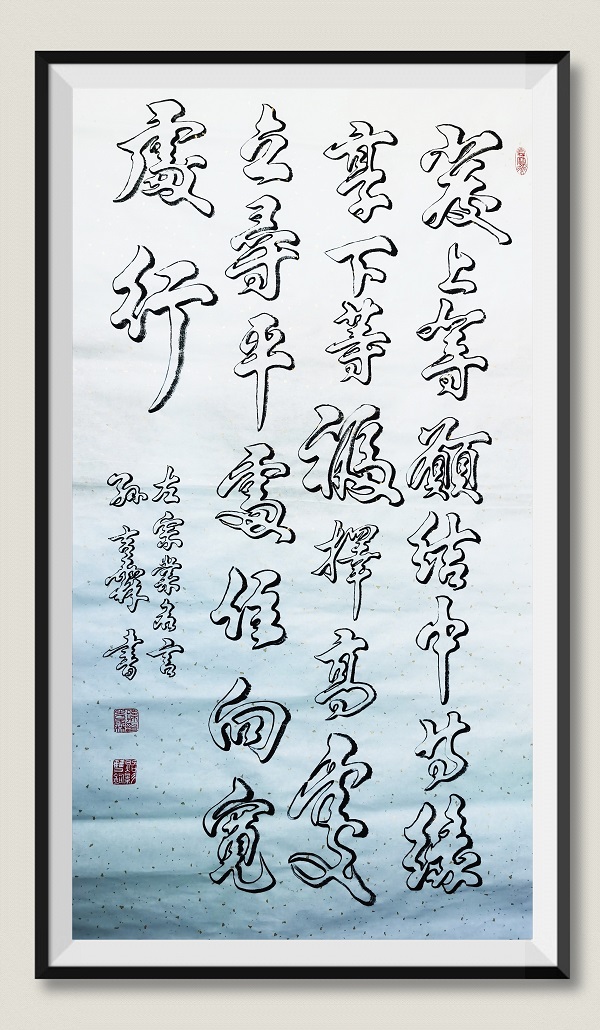 發上等願結中等緣
享下等福擇高處
立尋平處住向寬
處行
左宗棠名言
孫書